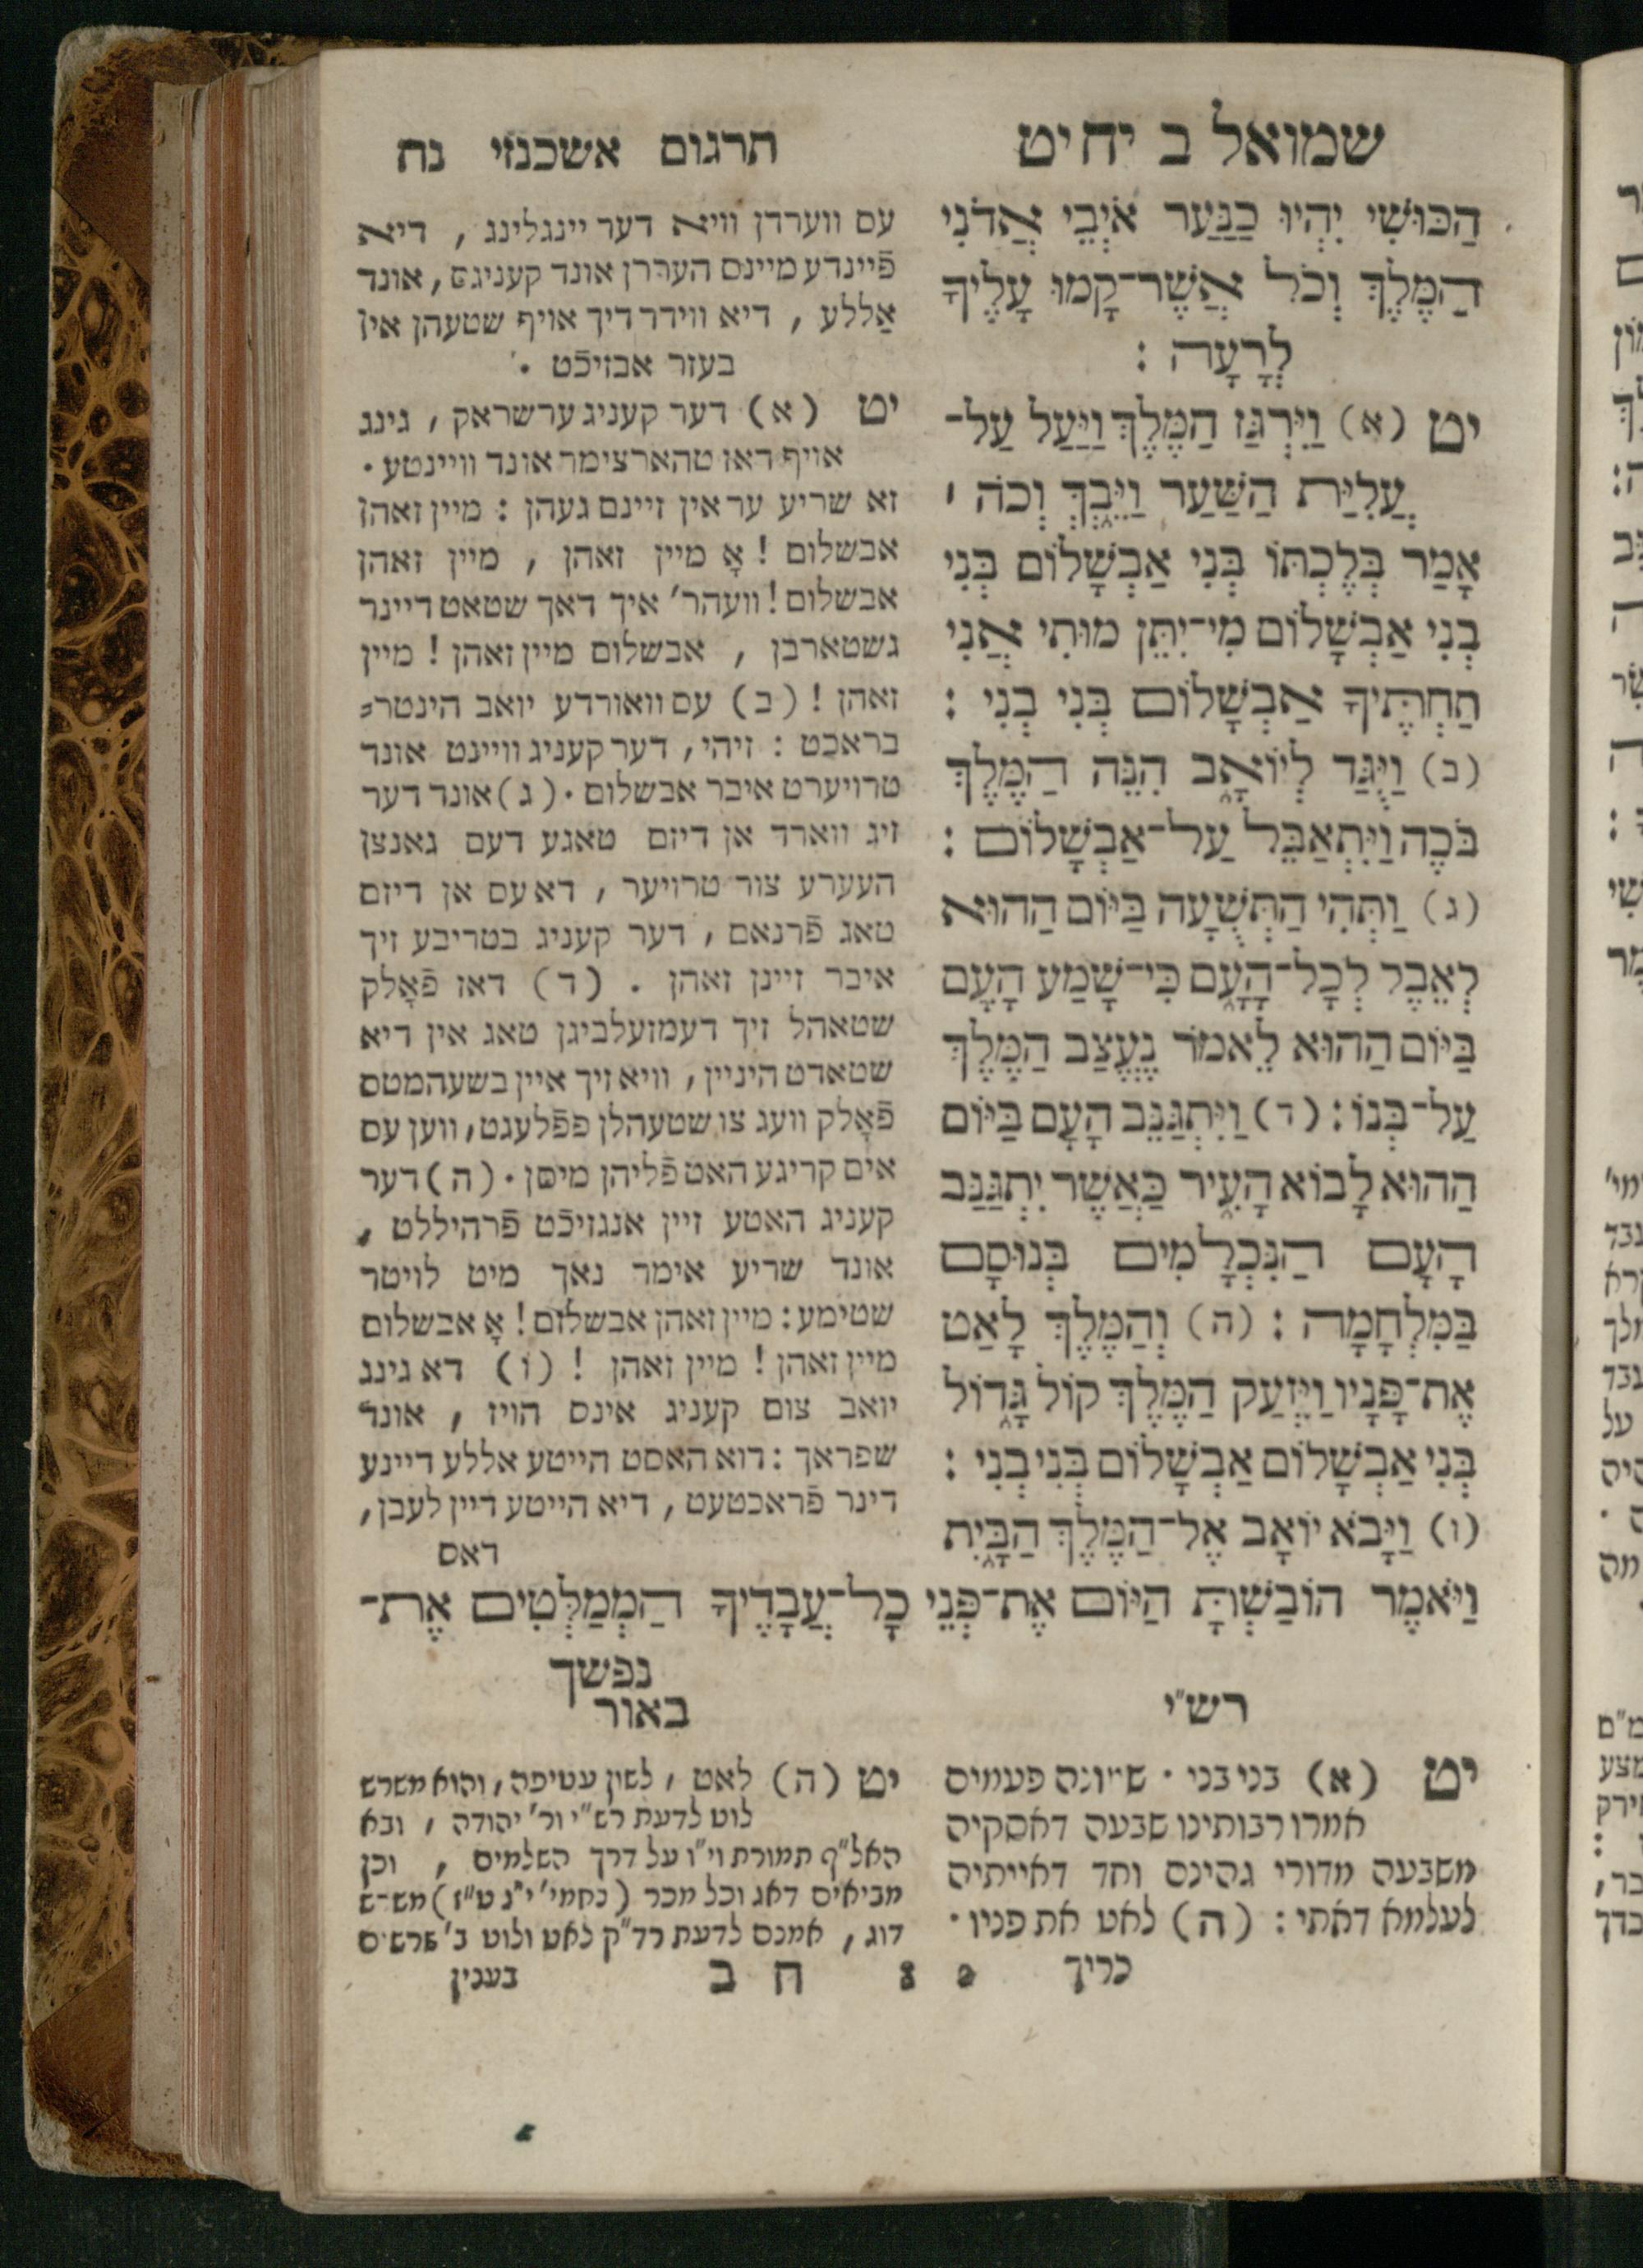 שמואל ב יח יט
הַכּוּשִׁי יִהְיוּ כַנַּעַר אֹיְבֵי אֲדֹנִי
הַמֶּלֶךְ וְכֹל אֲשֶׁר־קָמוּ עָלֶיךָ
לְרָעָה :
יט (א) וַיִּרְגַּז הַמֶּלֶךְ וַיַּעַל עַל־
עֲלִיַּת הַשַּׁעַר וַיֵּבְךְּ וְכֹה ׀
אָמַר בְּלֶכְתּוֹ בְּנִי אַבְשָׁלוֹם בְּנִי
בְנִי אַבְשָׁלוֹם מִי־יִתֵּן מוּתִי אֲנִי
תַחְתֶּיךָ אַבְשָׁלוֹם בְּנִי בְנִי :
(ב) וַיֻּגַּד לְיוֹאָב הִנֵּה הַמֶּלֶךְ
בֹּכֶה וַיִּתְאַבֵּל עַל־אַבְשָׁלוֹם :
(ג) וַתְּהִי הַתְּשֻׁעָה בַּיּוֹם הַהוּא
לְאֵבֶל לְכָל־הָעָם כִּי־שָׁמַע הָעָם
בַּיּוֹם הַהוּא לֵאמֹר נֶעֱצַב הַמֶּלֶךְ
עַל־בְּנוֹ : (ד) וַיִּתְגַּנֵּב הָעָם בַּיּוֹם
הַהוּא לָבוֹא הָעִיר כַּאֲשֶׁר יִתְגַּנֵּב
הָעָם הַנִּכְלָמִים בְּנוּסָם
בַּמִּלְחָמָה : (ה) וְהַמֶּלֶךְ לָאַט
אֶת־פָּנָיו וַיִּזְעַק הַמֶּלֶךְ קוֹל גָּדוֹל
בְּנִי אַבְשָׁלוֹם אַבְשָׁלוֹם בְּנִי בְנִי :
(ו) וַיָּבֹא יוֹאָב אֶל־הַמֶּלֶךְ הַבָּיִת
תרגום אשכנזי נח
עס ווערדן וויא דער יינגלינג , דיא
פֿיינדע מיינס העררן אונד קעניגס , אונד
אַללע , דיא ווידר דיך אויף שטעהן אין
בעזר אבזיכֿט .
יט (א) דער קעניג ערשראק , גינג
אויף דאז טהארצימר אונד וויינטע .
זא שריע ער אין זיינם געהן : מיין זאהן
אבשלום ! אָ מיין זאהן , מיין זאהן
אבשלום ! וועהר' איך דאך שטאט דיינר
גשטארבן , אבשלום מיין זאהן ! מיין
זאהן ! (ב) עס וואורדע יואב הינטר=
בראכט : זיהי , דער קעניג וויינט אונד
טרויערט איבר אבשלום . (ג) אונד דער
זיג ווארד אן דיזם טאגע דעם גאנצן
העערע צור טרויער , דא עס אן דיזם
טאג פֿרנאם , דער קעניג בטריבע זיך
איבר זיינן זאהן . (ד) דאז פֿאָלק
שטאהל זיך דעמזעלביגן טאג אין דיא
שטאדט היניין , וויא זיך איין בשעהמטס
פֿאָלק וועג צו שטעהלן פפֿלעגט , ווען עס
אים קריגע האט פֿליהן מיסן . (ה) דער
קעניג האטע זיין אנגזיכֿט פֿרהיללט ,
אונד שריע אימר נאך מיט לויטר
שטימע : מיין זאהן אבשלום ! אָ אבשלום
מיין זאהן ! מיין זאהן ! (ו) דא גינג
יואב צום קעניג אינס הויז , אונד
שפראך : דוא האסט הייטע אללע דיינע
דינר פֿראכטעט , דיא הייטע דיין לעבן ,
דאס
וַיֹּאמֶר הוֹבַשְׁתָּ הַיּוֹם אֶת־פְּנֵי כָל־עֲבָדֶיךָ הַמְמַלְּטִים אֶת־
נפשך
רש"י
יט (א) בני בני . שמונה פעמים
אמרו רבותינו שבעה דאסקיה
משבעה מדורי גהינם וחד דאייתיה
לעלמא דאתי : (ה) לאט את פניו .
כריך
באור
יט (ה) לאט , לשון עטיפה , והוא משרש
לוט לדעת רש"י ור' יהודה , ובא
האל"ף תמורת וי"ו על דרך השלמים , וכן
מביאים דאג וכל מכר (נחמי' י"ג ט"ז) משרש
דוג , אמנם לדעת רד"ק לאט ולוט ב' שרשים
בענין
ח ב